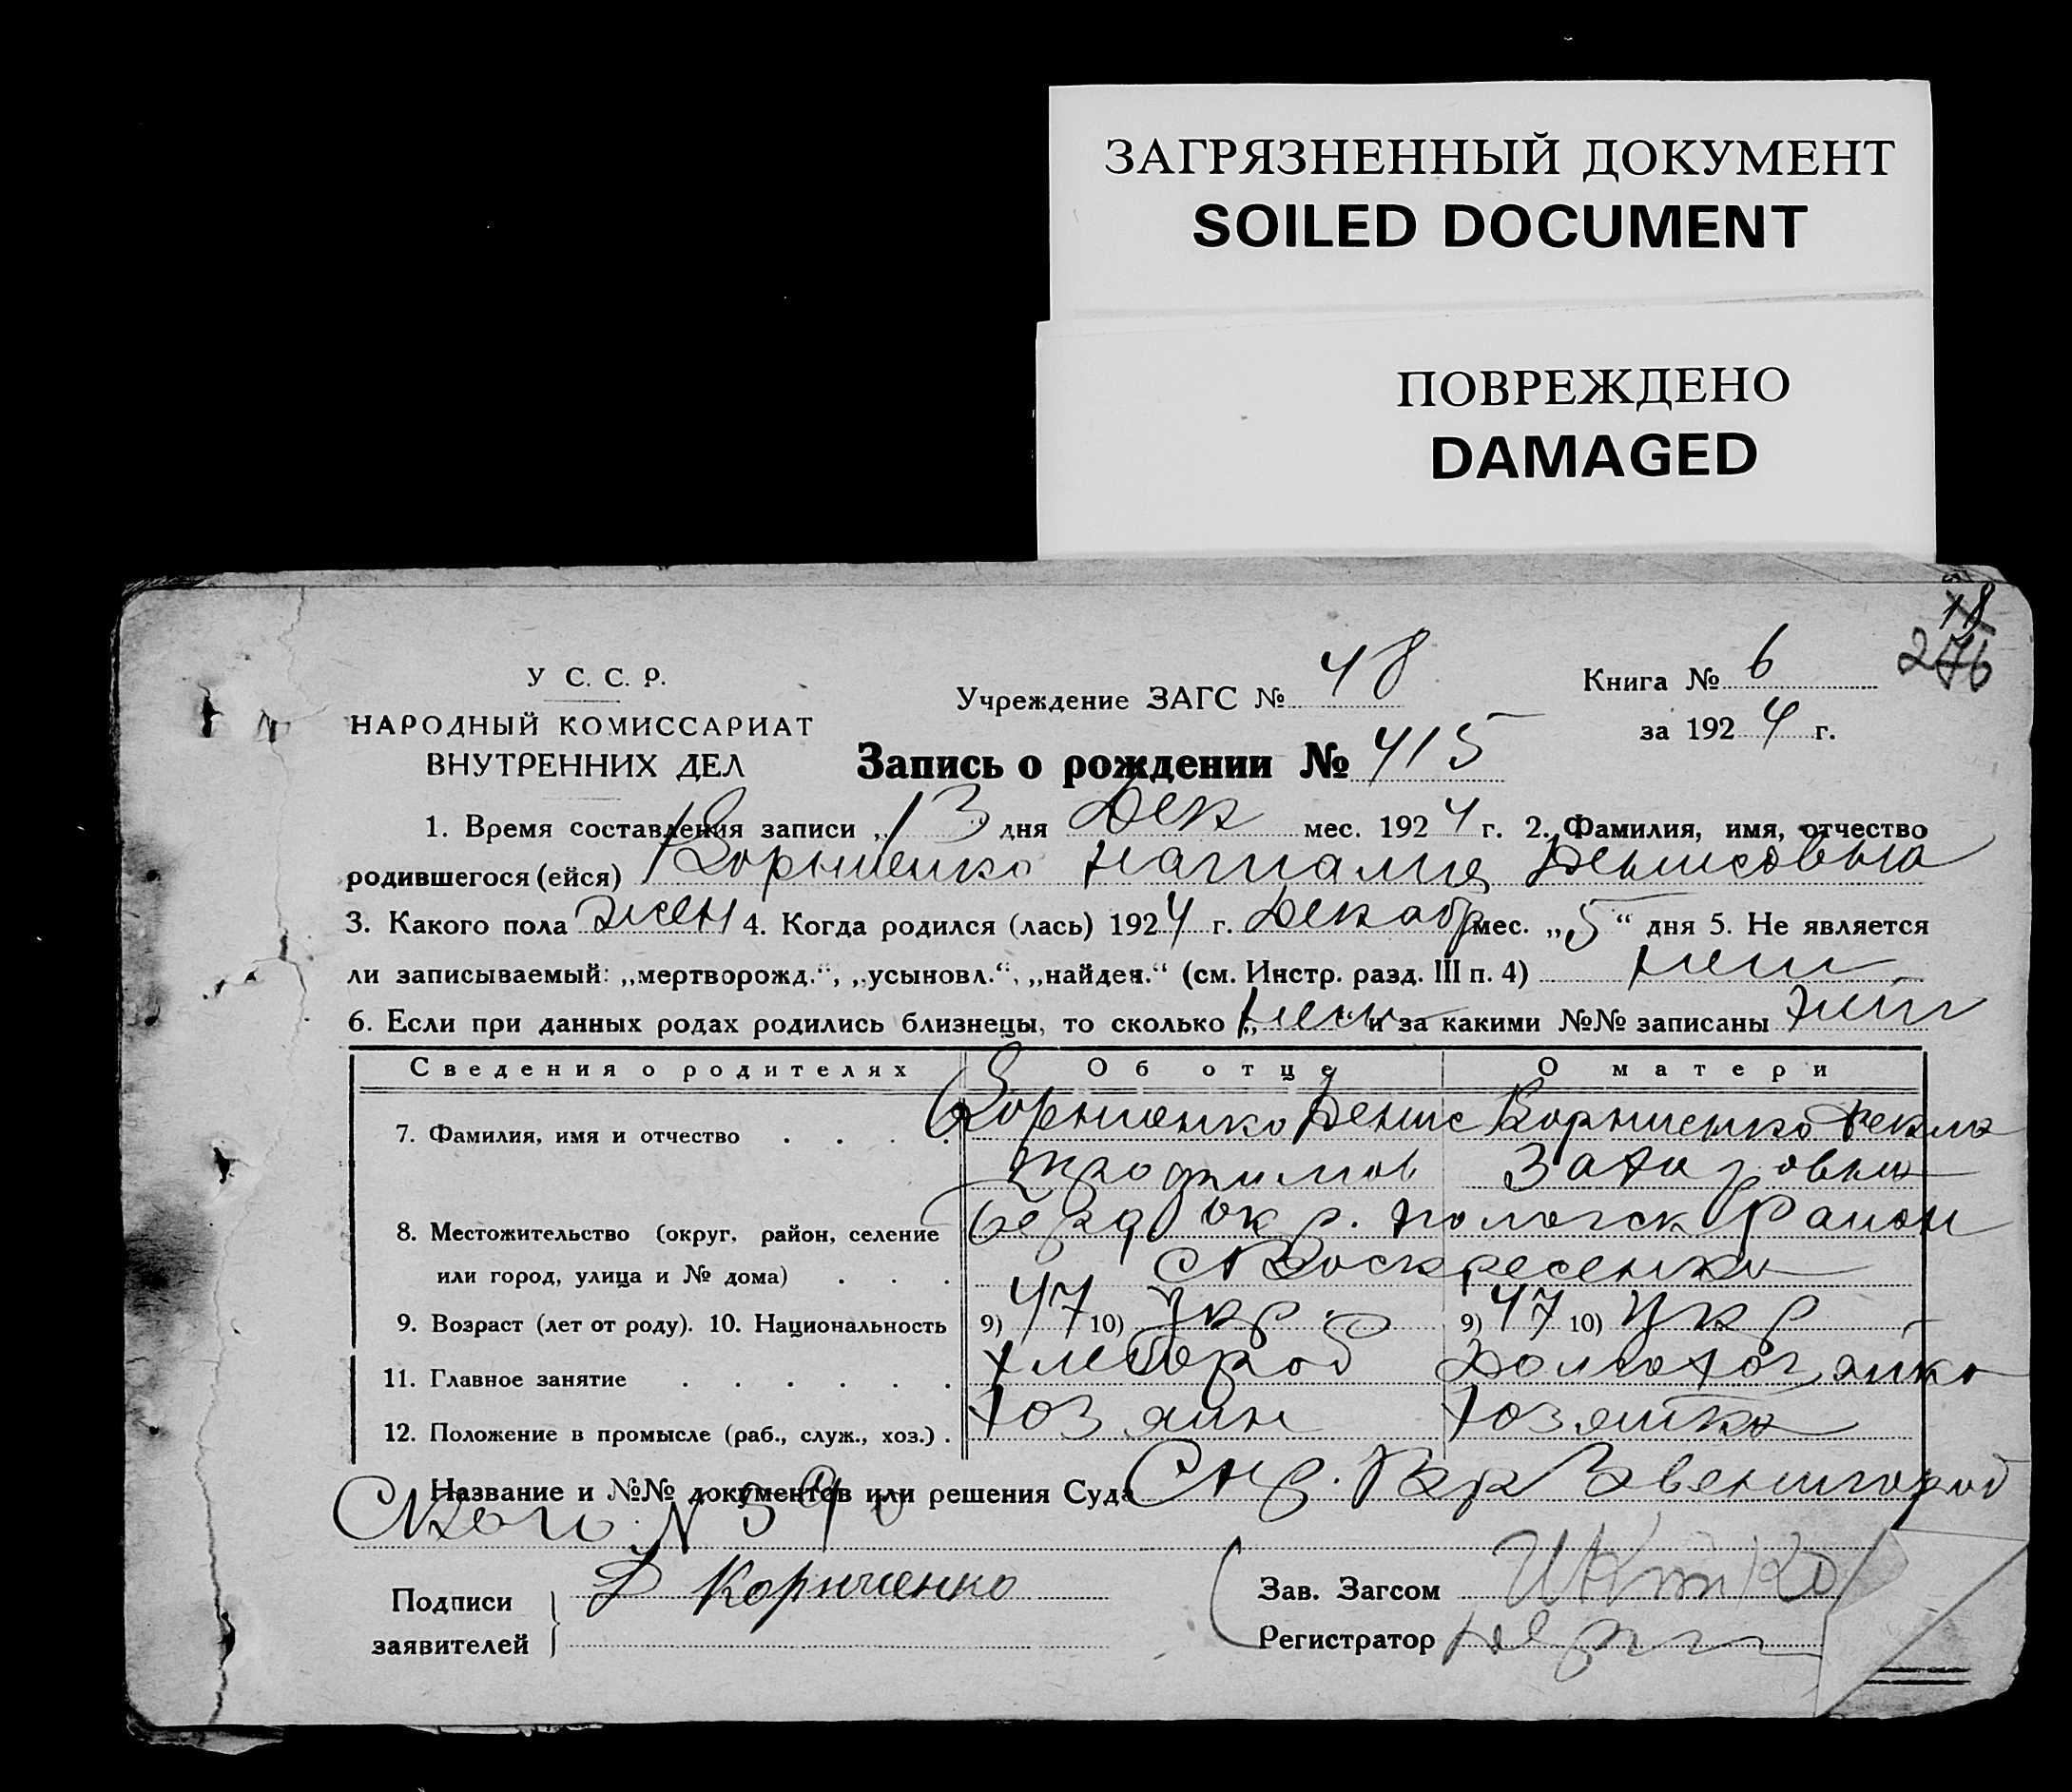 ЗАГРЯЗНЕННЫЙ ДОКУМЕНТ
SOILED DOCUMENT
ПОВРЕЖДЕНО
DAMAGED
18
276
У С. С. Р.
НАРОДНЫЙ КОМИССАРИАТ
ВНУТРЕННИХ ДЕЛ
Учреждение ЗАГС № 48
Книга № 6
за 1924 г.
Запись о рождении № 415
1. Время составления записи „13 дня Дек мес. 1924 г. 2. Фамилия, имя, отчество
родившегося (ейся) Корниенко Наталия Денисовна
3. Какого пола жен 4. Когда родился (лась) 1924 г. Декабр мес. „5“ дня 5. Не является
ли записываемый: „мертворожд.“, „усыновл.“, „найден.“ (см. Инстр. разд. III п. 4) нет
6. Если при данных родах родились близнецы, то сколько „нет“ и за какими №№ записаны нет
Сведения о родителях Об отце О матери
7. Фамилия, имя и отчество Корниенко Денис Корниенко Фекла
Трофимов Захаровна
8. Местожительство (округ, район, селение Берд окр. Пологск Район
или город, улица и № дома) С Воскресенка
9. Возраст (лет от роду). 10. Национальность 9) 47 10) Укр. 9) 47 10) Укр
11. Главное занятие Хлебороб Домохозяйка
12. Положение в промысле (раб., служ., хоз.) Хозяин Хозяйка
Название и №№ документов или решения Суда Звенигород
№
Подписи
заявителей
Д Корниенко
Зав. Загсом
Регистратор